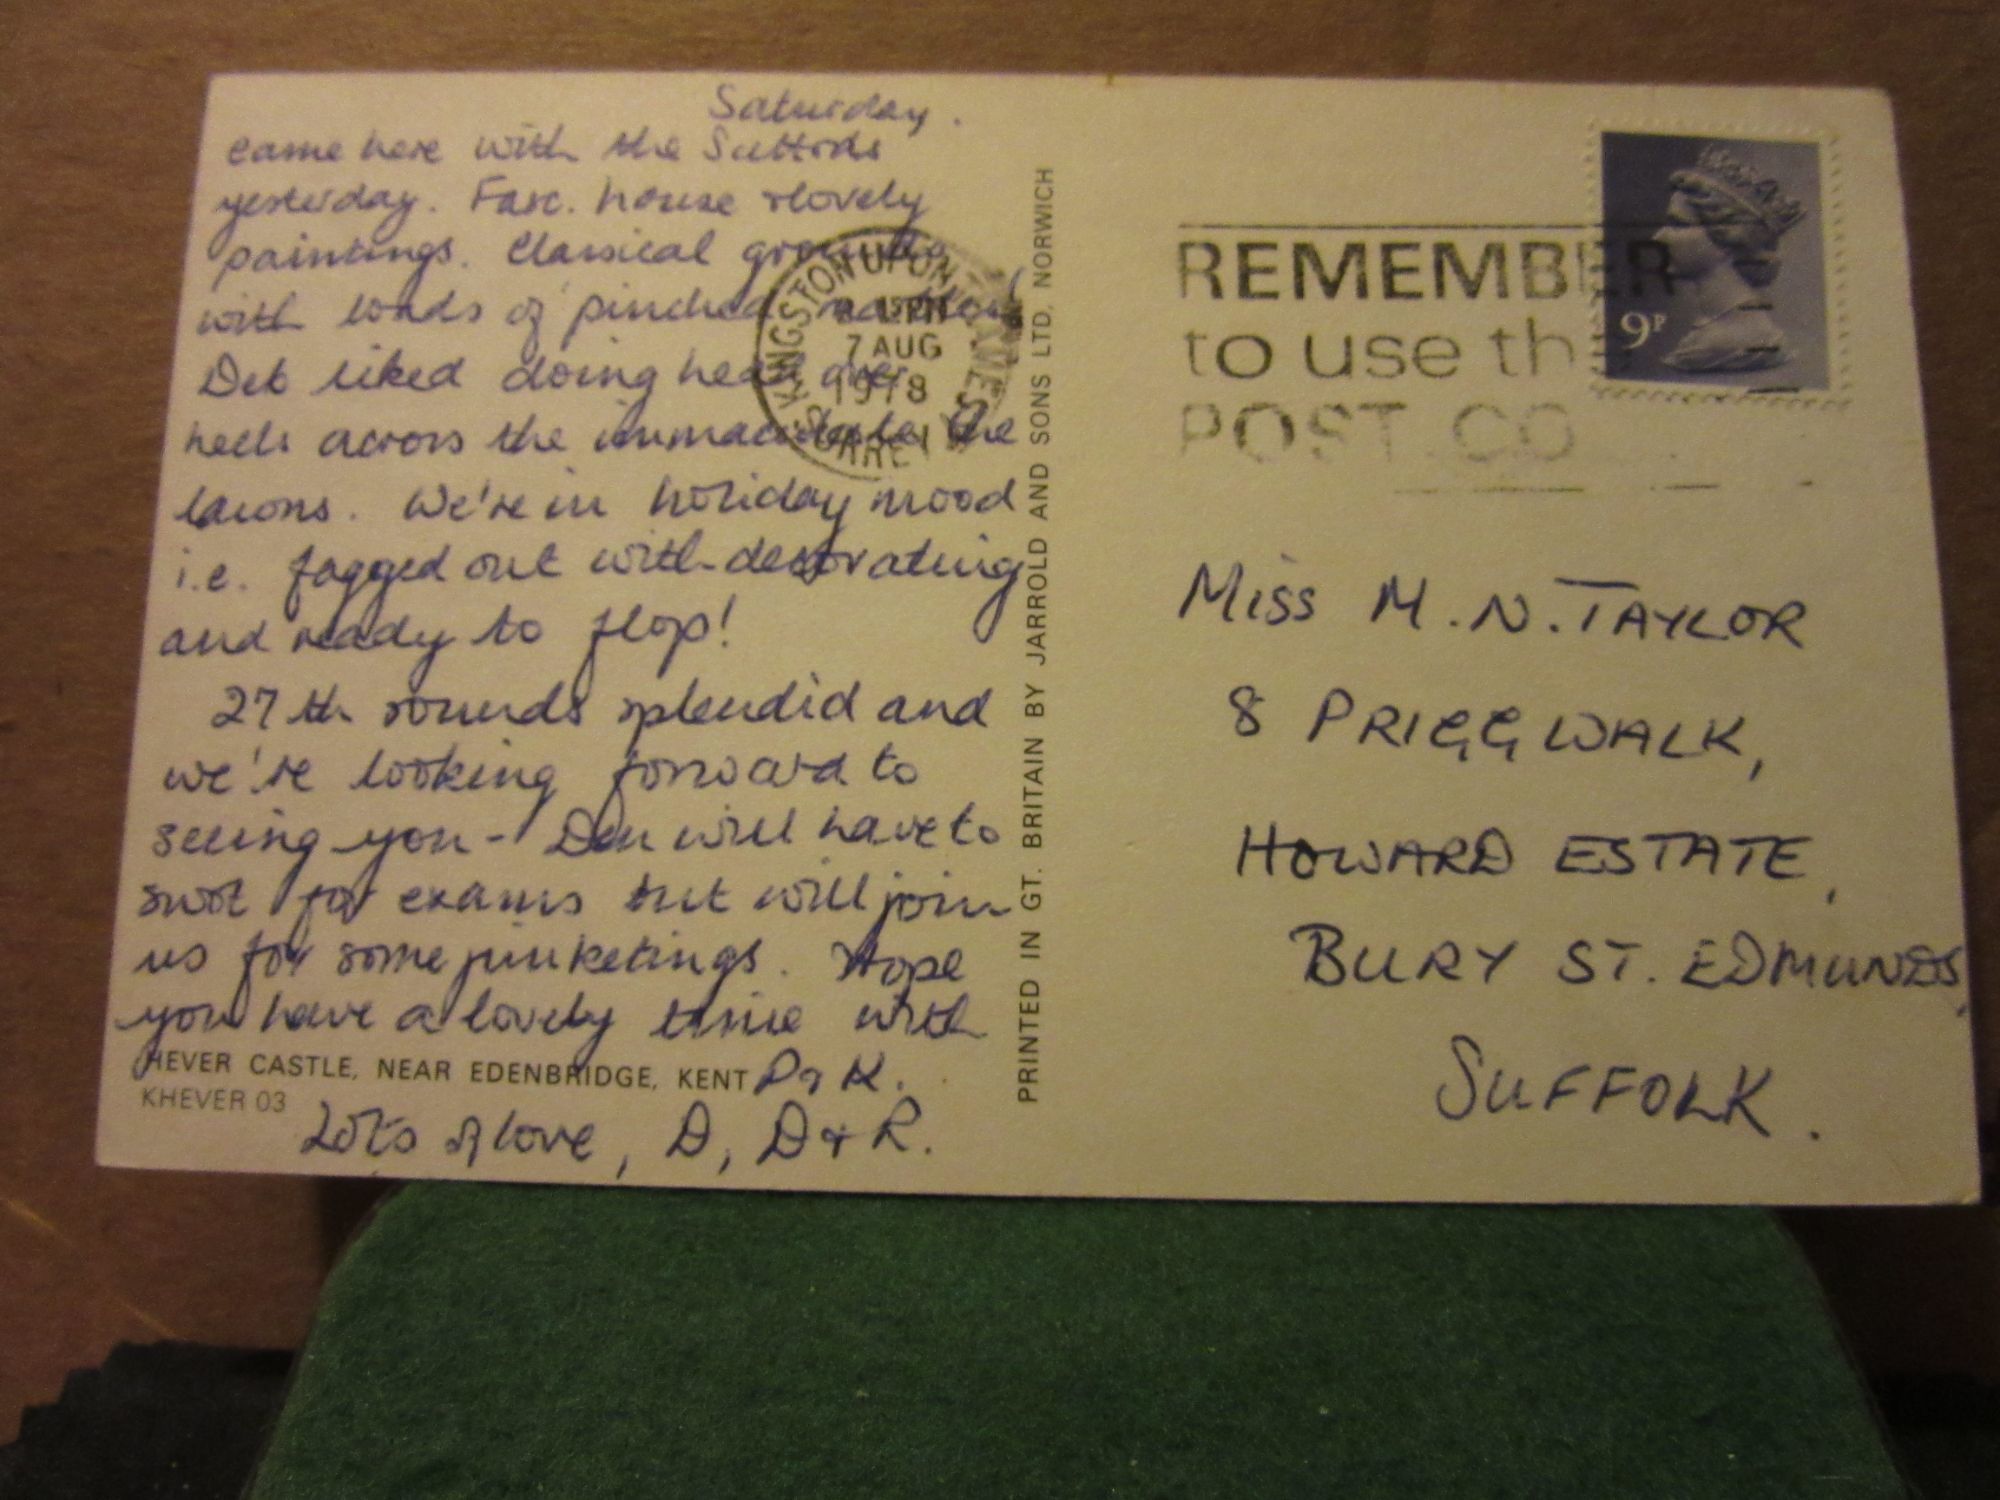 Saturday.
came here with the Suttons
yesterday. Fasc. house & lovely
paintings. Classical grounds
with loads of pinched
Deb liked doing head over
heels across the immaculate
lawns. We're in holiday mood
i.e. fagged out with decorating
and ready to flop!
27th sounds splendid and
we're looking forward to
seeing you - Den will have to
swot for exams but will join
us for some junketings. Hope
you have a lovely time with
P & K.
HEVER CASTLE, NEAR EDENBRIDGE, KENT
KHEVER 03
Lots of love, D, D & R.
PRINTED IN GT. BRITAIN BY JARROLD AND SONS LTD, NORWICH
KINGSTON UPON THAMES
PM
7 AUG
1978
SURREY
REMEMBER
to use th
POST CO
9P
MISS M. N. TAYLOR
8 PRIGG WALK,
HOWARD ESTATE,
BURY ST. EDMUNDS,
SUFFOLK.